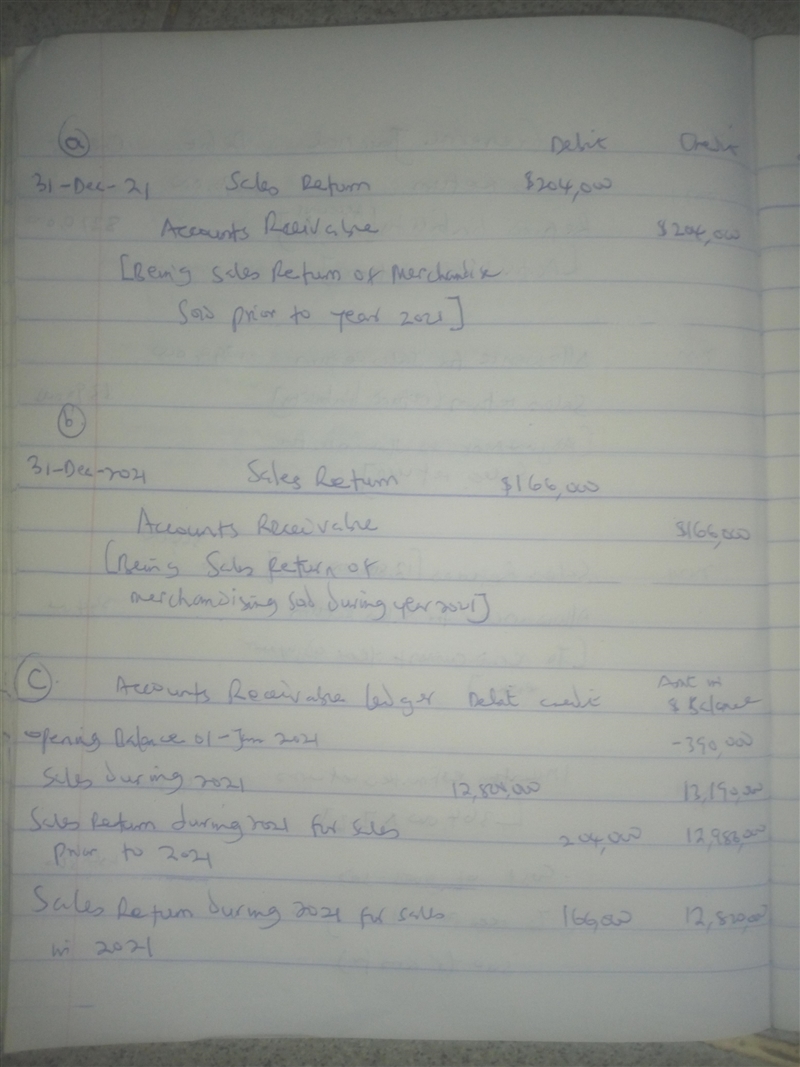 (a)
Debit Credit
31-Dec-21 Sales Return $204,000
Accounts Receivable $204,000
[Being Sales Return of Merchandise
Sold prior to year 2021]
(b)
31-Dec-2021 Sales Return $166,000
Accounts Receivable $166,000
[Being Sales Return of
merchandising sold during year 2021]
(C) Accounts Receivable ledger Debit credit Amt in $ Balance
Opening Balance 01-Jan 2021 -390,000
Sales during 2021 13,190,000
Sales Return during 2021 for sales 204,000 12,986,000
prior to 2021
Sales Return during 2021 for sales 166,000 12,820,000
in 2021